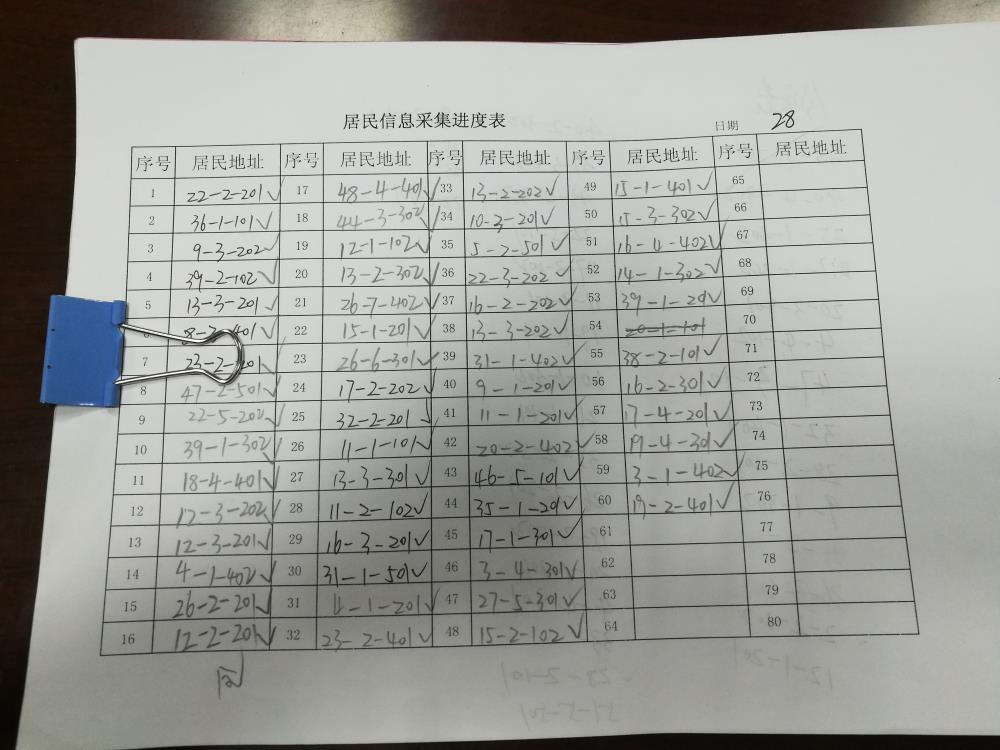 居民信息采集进度表
日期 28
序号 居民地址 序号 居民地址 序号 居民地址 序号 居民地址 序号 居民地址
1 22-2-201√ 17 48-4-401√ 33 13-2-202√ 49 15-1-401√ 65
2 36-1-101√ 18 44-3-302√ 34 10-3-201√ 50 15-3-302√ 66
3 9-3-202√ 19 12-1-102√ 35 5-2-501√ 51 16-4-402√ 67
4 39-2-102√ 20 13-2-302√ 36 22-3-202√ 52 14-1-302√ 68
5 13-3-201√ 21 26-7-402√ 37 16-2-202√ 53 39-1-201√ 69
6 22 15-1-201√ 38 13-3-202√ 54 20-1-101 70
7 23 26-6-301√ 39 31-1-402√ 55 38-2-101√ 71
8 47-2-501√ 24 17-2-202√ 40 9-1-201√ 56 16-2-301√ 72
9 22-5-202√ 25 32-2-201√ 41 11-1-201√ 57 17-4-201√ 73
10 39-1-302√ 26 11-1-101√ 42 20-2-402√ 58 19-4-301√ 74
11 18-4-401√ 27 13-3-301√ 43 46-5-101√ 59 3-1-402√ 75
12 12-3-202√ 28 11-2-102√ 44 35-1-201√ 60 19-2-401√ 76
13 12-3-201√ 29 16-3-201√ 45 17-1-301√ 61 77
14 4-1-402√ 30 31-1-501√ 46 3-4-301√ 62 78
15 26-2-201√ 31 4-1-201√ 47 27-5-301√ 63 79
16 12-2-201√ 32 23-2-401√ 48 15-2-102√ 64 80